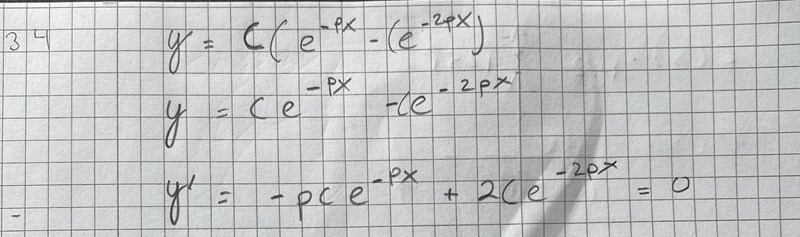 34 y = C(e^-px - (e^-2px)
y = Ce^-px - Ce^-2px
y' = -pCe^-px + 2Ce^-2px = 0
-